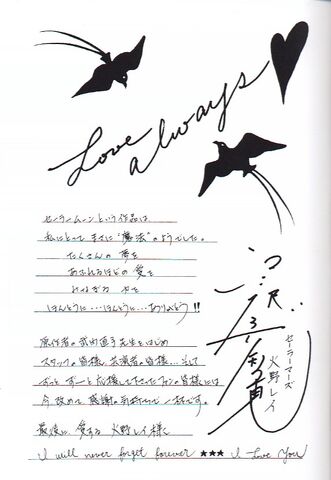 Love always
セーラームーンという作品は
私にとって まさに"魔法"のようでした。
たくさんの 夢を
あふれるほどの 愛を
ほんとうに…ほんとうに…ありがとう!!
原作者の武内直子先生をはじめ
スタッフの皆様、共演者の皆様…そして
ずっと ずーっと応援して下さったファンの皆様には
今改めて 感謝の気持ちで一杯です。
最後に 愛する 火野レイ様に
I will never forget forever ★★★ I Love You
セーラーマーズ
火野レイ